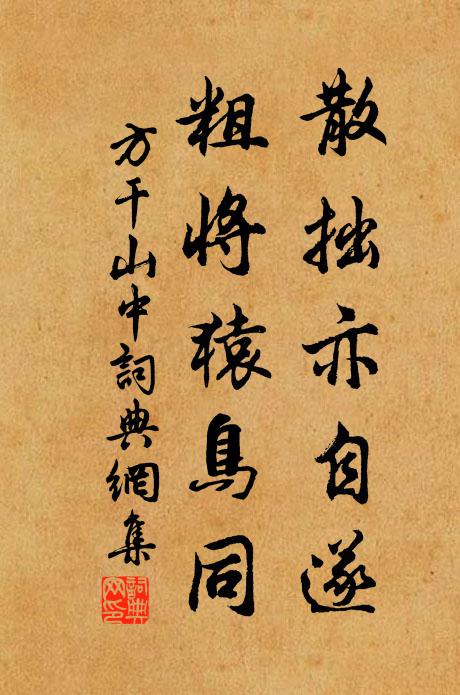 散拙亦自遂
粗將猿鳥同
方干山中詞典網集
詞典網印